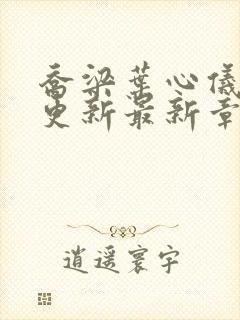 乔梁叶心仪
更新最新章
逍遥寰宇